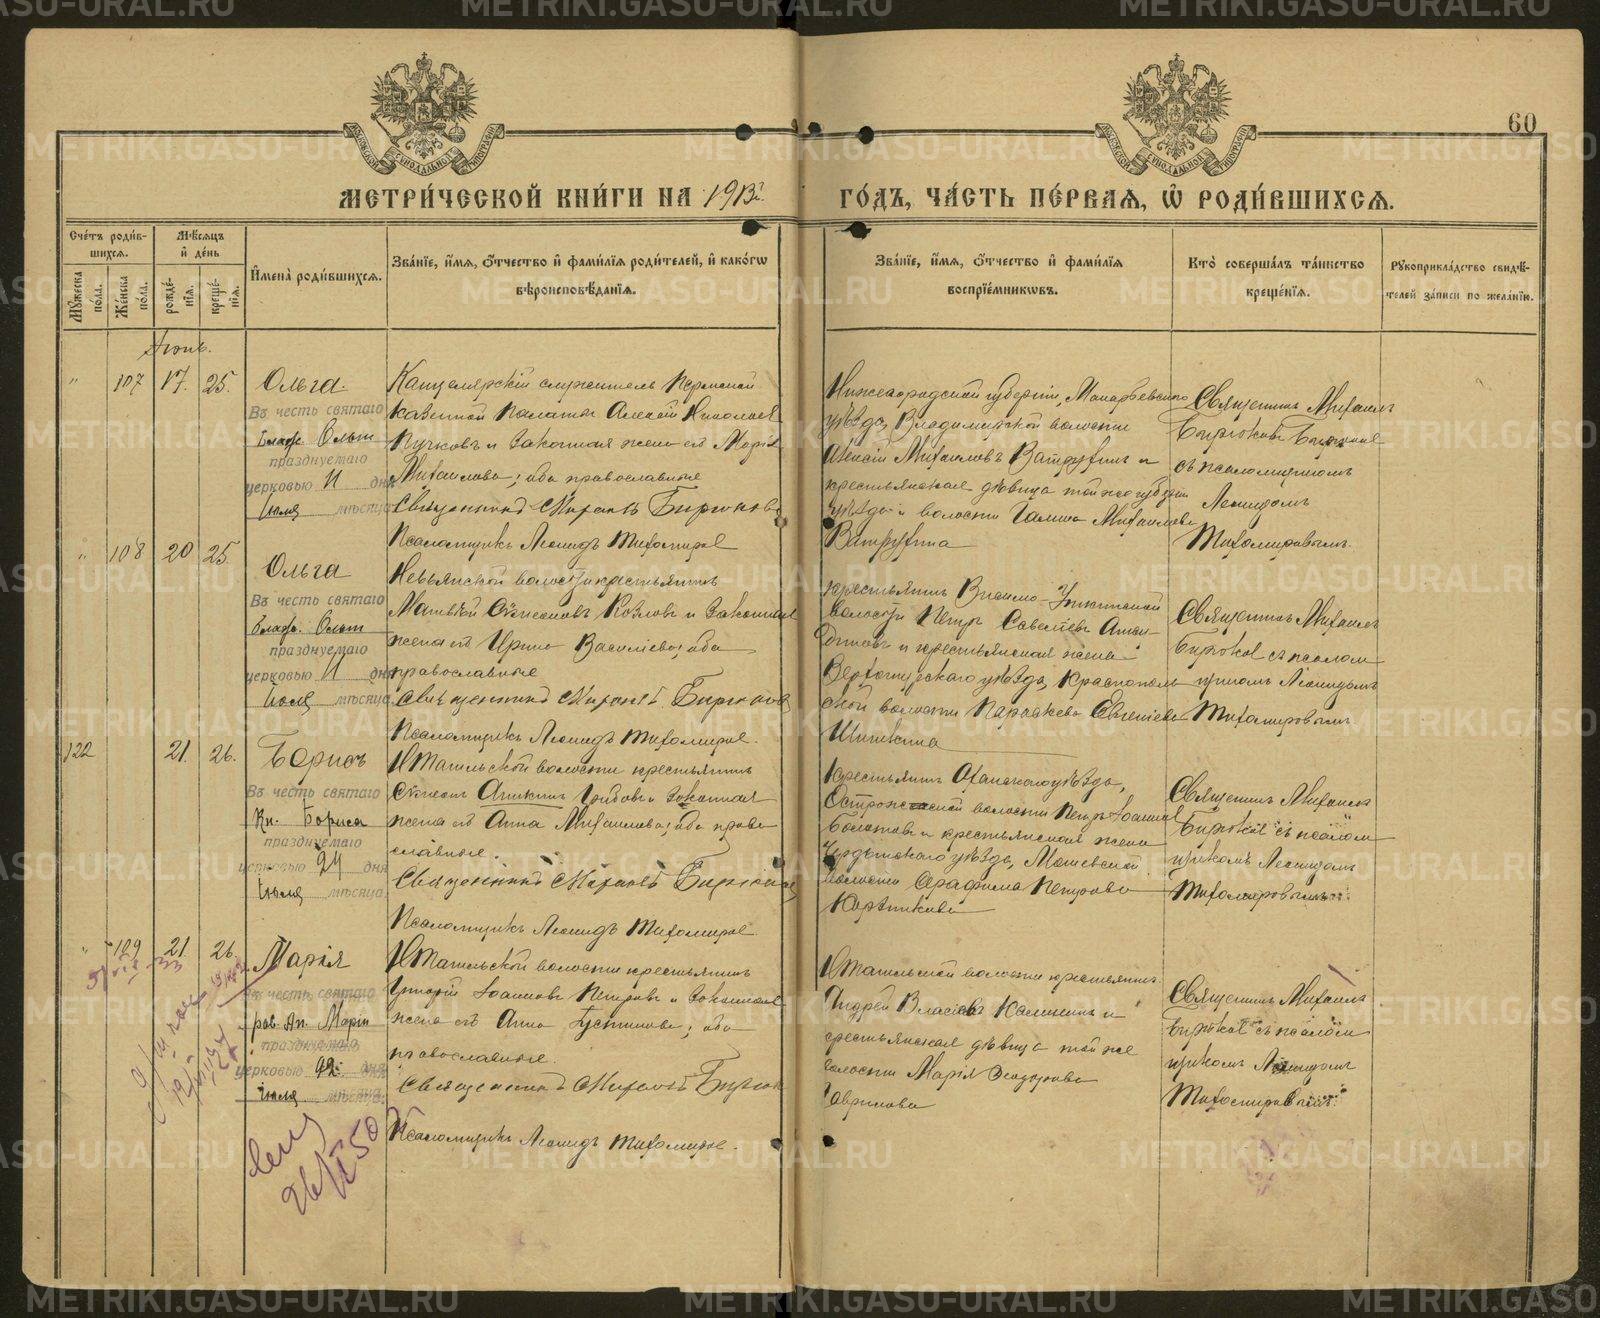 60
МЕТРИ́ЧЕСКОЙ КНИ́ГИ НА 1913й. ГО́ДЪ, ЧА́СТЬ ПЕ́РВАЯ, Ѡ РОДИ́ВШИХСЯ.
Сче́тъ роди́в-
шихся.
Мꙋ́жеска по́ла.
Же́нска по́ла.
Мѣ́сяцъ
и де́нь
рожде́нія.
креще́нія.
Имена̀ роди́вшихся.
Зва́ніе, и́мя, о́тчество и фами́лія роди́телей, и како́гѡ
вѣроисповѣ́данія.
Зва́ніе, и́мя, о́тчество и фами́лія
воспріе́мникѡвъ.
Кто̀ соверша́лъ та́инство
креще́нія.
Рꙋкоприкла́дство свидѣ́-
телей за́писи по жела́нію.
Іюнь.
" 107 17. 25. Ольга.
Въ честь святаго
Благ. Ольги
празднуемаго
церковью 11 дня
Іюля мѣсяца
Канцелярскій служитель Пермской
Казенной Палаты Алексѣй Николаевъ
Пучковъ и законная жена его Марія
Михаилова; оба православные
Священникъ Михаилъ Бирюковъ
Псаломщикъ Леонидъ Тихомировъ
Нижегородской губерніи, Макарьевскаго
уѣзда, Владимірской волости
Алексій Михаиловъ Ватругинъ и
крестьянская дѣвица той же губерніи
уѣзда и волости Михаилова
Ватругина
Священникъ Михаилъ
Бирюковъ
съ псаломщикомъ
Леонидомъ
Тихомировымъ.
" 108 20 25. Ольга
Въ честь святаго
Благ. Ольги
празднуемаго
церковью 11 дня
Іюля мѣсяца
Невьянской волости крестьянинъ
Матвѣй Козловъ и законная
жена его Ирина Василіева; оба
православные
Священникъ Михаилъ Бирюковъ
Псаломщикъ Леонидъ Тихомировъ.
крестьянинъ Висимо-Уткинской
волости Петръ Савеліевъ
и крестьянская жена
Верхотурскаго уѣзда, Краснополь
ской волости Параскева Евгеніева
Шишкина
Священникъ Михаилъ
Бирюковъ съ псалом
щикомъ Леонидомъ
Тихомировымъ.
122 21. 26. Борисъ
Въ честь святаго
Кн. Бориса
празднуемаго
церковью 24 дня
Іюля мѣсяца
Н Тагильской волости крестьянинъ
Грибовъ и законная
жена его Анна Михаилова; оба право
славные.
Священникъ Михаилъ Бирюковъ
Псаломщикъ Леонидъ Тихомировъ.
Крестьянинъ Оханскаго уѣзда,
Острожской волости Петръ Іоанновъ
Болотовъ и крестьянская жена
Чердынскаго уѣзда, Мошевской
волости Серафима Петрова
Священникъ Михаилъ
Бирюковъ съ псалом
щикомъ Леонидомъ
Тихомировымъ.
" 109 21 26. Марія
Въ честь святаго
рав. Ап. Маріи
празднуемаго
церковью 22. дня
Іюля мѣсяца.
Н Тагильской волости крестьянинъ
Григорій Іоанновъ Петровъ и законная
жена его Анна Іустинова; оба
православные.
Священникъ Михаилъ Бирюковъ
Псаломщикъ Леонидъ Тихомировъ.
Н Тагильской волости крестьянинъ
Андрей Власіевъ Калининъ и
крестьянская дѣвица той же
волости Марія Ѳеодорова
Гаврилова
Священникъ Михаилъ
Бирюковъ съ псалом
щикомъ Леонидомъ
Тихомировымъ.
METRIKI.GASO-URAL.RU